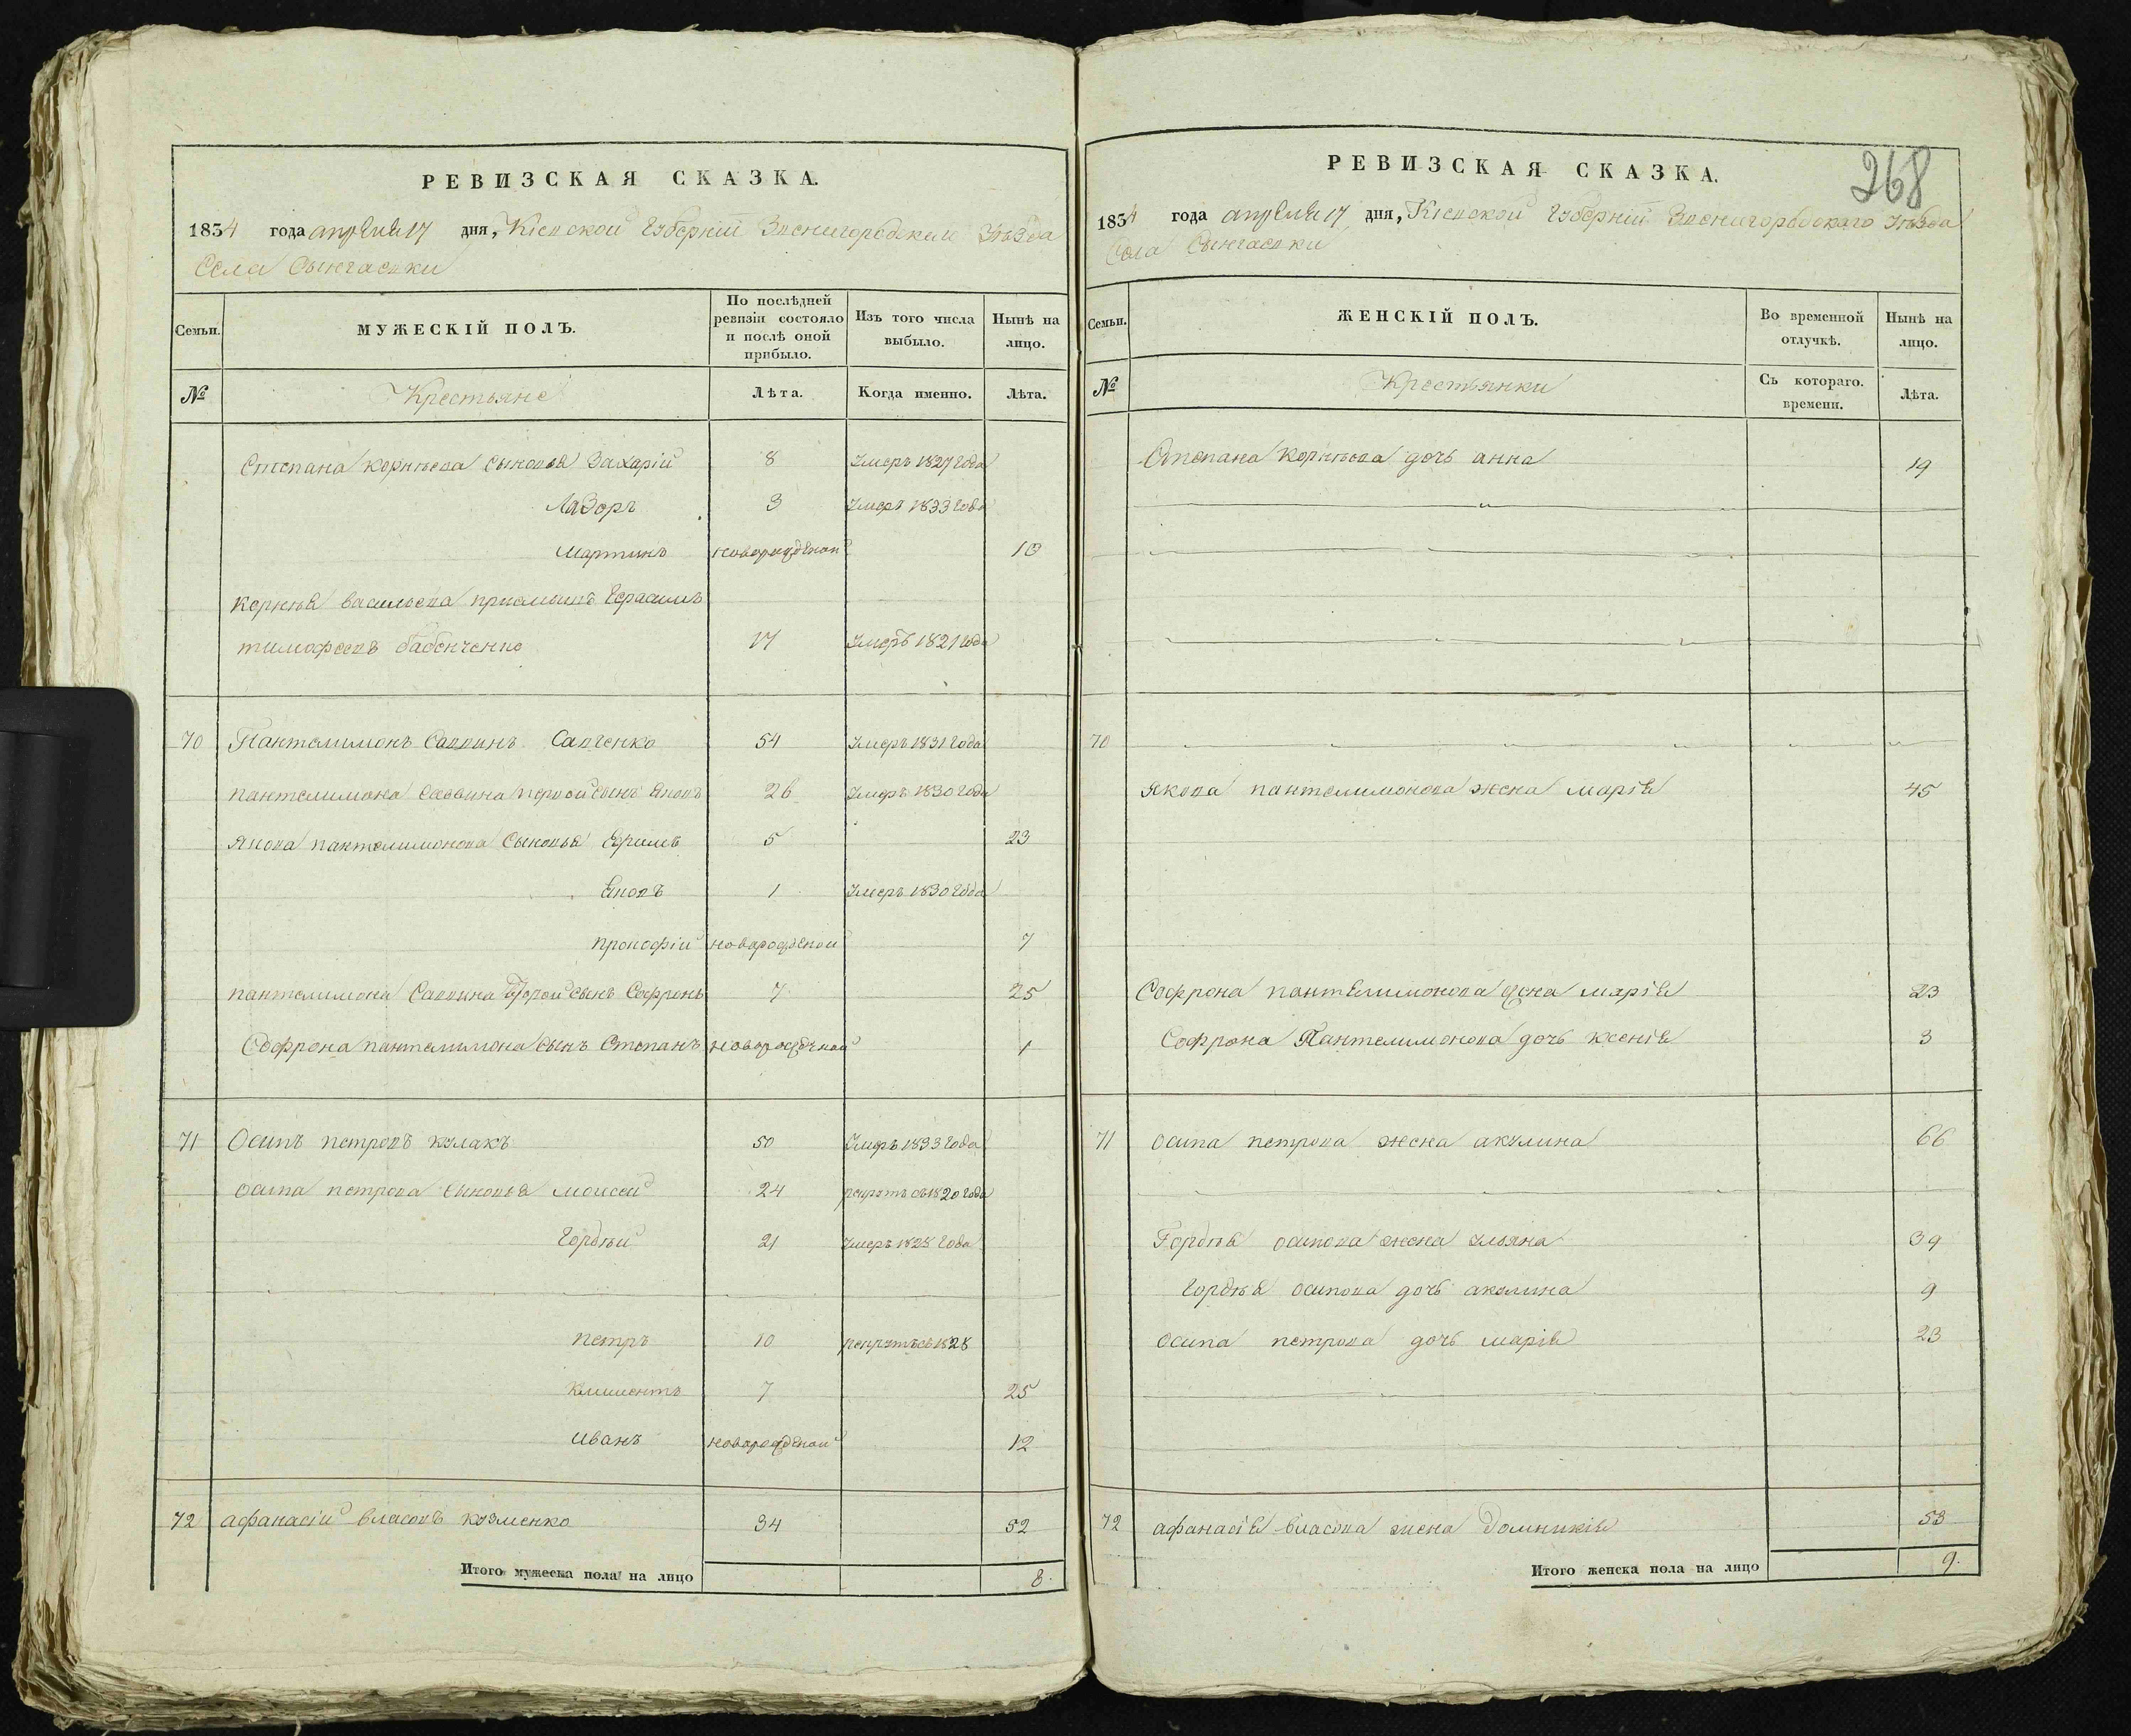 РЕВИЗСКАЯ СКАЗКА.
1834 года апреля 17 дня, Кіевской Губерніи Звенигородскаго Уѣзда
Села
Семьи. МУЖЕСКІЙ ПОЛЪ. По послѣдней ревизіи состояло и послѣ оной прибыло. Изъ того числа выбыло. Нынѣ на лицо.
№ Крестьяне Лѣта. Когда именно. Лѣта.
Степана Корнѣева сыновья Захарій 8 Умеръ 1827 года
Лазоръ 3 Умеръ 1833 года
Мартинъ новорожденой 10
Корнѣя василева приемышъ Герасимъ
тимофеевъ бабенченко 17 Умеръ 1821 года
70 Пантелимонъ Саввинъ Савченко 54 Умеръ 1831 года
пантелимона саввина первой сынъ Яковъ 26 Умеръ 1830 года
якова пантелимонова сыновья Ефимъ 5 23
Яковъ 1 Умеръ 1830 года
прокофій новорожденой 7
пантелимона Саввина второй сынъ Софронъ 7 25
Софрона пантелимона сынъ Степанъ новорожденой 1
71 Осипъ петровъ кулакъ 50 Умеръ 1833 года
осипа петрова сыновья моисей 24 рекрутъ съ 1820 года
Гордѣй 21 Умеръ 1828 года
петръ 10 рекрутъ съ 1828
климентъ 7 25
иванъ новорожденой 12
72 афанасій власовъ кузменко 34 52
Итого мужеска пола на лицо 8.
268
РЕВИЗСКАЯ СКАЗКА.
1834 года апреля 17 дня, Кіевской Губерніи Звенигородскаго Уѣзда
Села
Семьи. ЖЕНСКІЙ ПОЛЪ. Во временной отлучкѣ. Нынѣ на лицо.
№ Крестьянки Съ котораго времени. Лѣта.
Степана Корнѣева дочь анна 19
70
якова пантелимонова жена марія 45
Софрона пантелимонова жена марія 23
Софрона Пантелимонова дочь ксенія 3
71 осипа петрова жена акулина 66
Гордѣя осипова жена ульяна 39
Гордѣя осипова дочь акулина 9
осипа петрова дочь марія 23
72 афанасія власова жена Домникія 53
Итого женска пола на лицо 9.